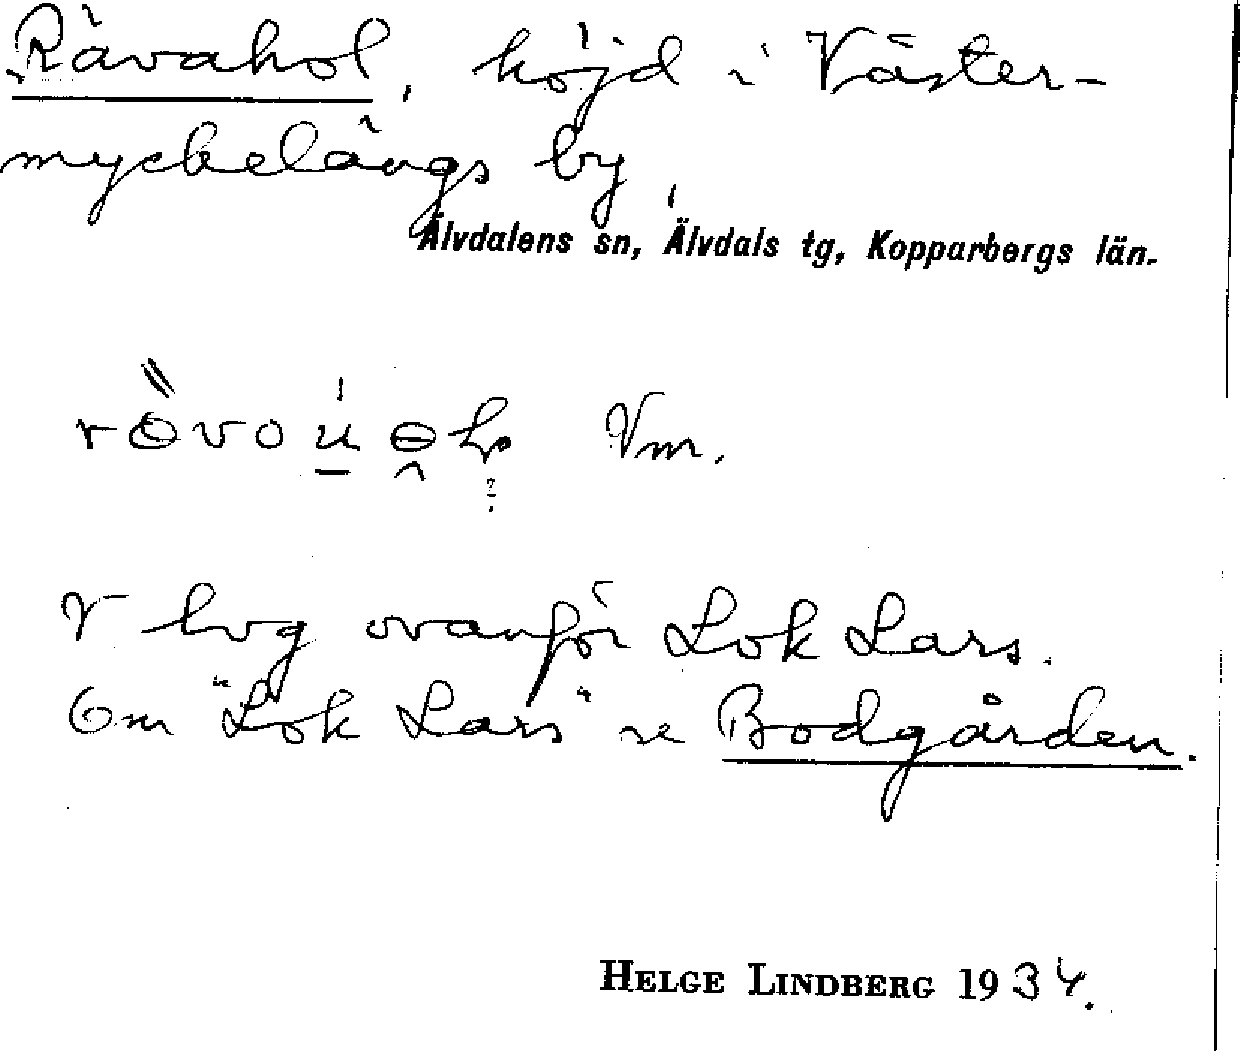 Rävahol, höjd i Väster-
myckelängs by
Älvdalens sn, Älvdals tg, Kopparbergs län.
Vm.
V lvg ovanför Lok Lars.
Om "Lok Lars" se Bodgården.
HELGE LINDBERG 1934.